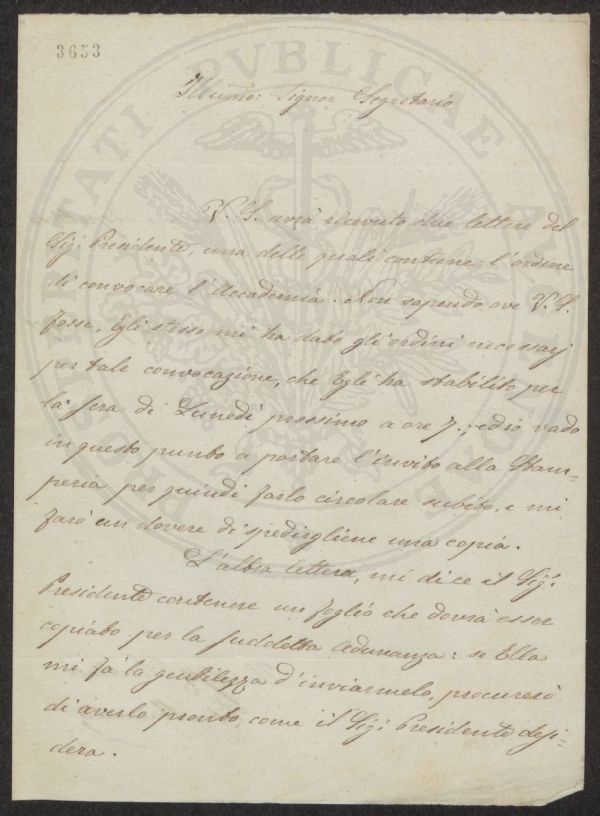 3653
Illumo: Signor Segretario
V. S. avrà ricevuto due lettere del
Sig: Presidente, una delle quali contiene l'ordine
di convocare l'Accademia. Non sapendo ove V. S.
fosse, Egli stesso mi ha dato gli ordini necessarj
per tale convocazione, che Egli ha stabilito per
la sera di Lunedì prossimo a ore 7.; ed io vado
in questo punto a portare l'invito alla Stam=
peria per quindi farlo circolare subito, e mi
farò un dovere di spedirgliene una copia.
L'altra lettera, mi dice il Sig:
Presidente contenere un foglio che dovrà esser
copiato per la suddetta adunanza: se Ella
mi fà la gentilezza d'inviarmelo, procurerò
di averlo pronto, come il Sig: Presidente desi=
dera.
PROSPERITATI PVBLICAE AVGENDAE